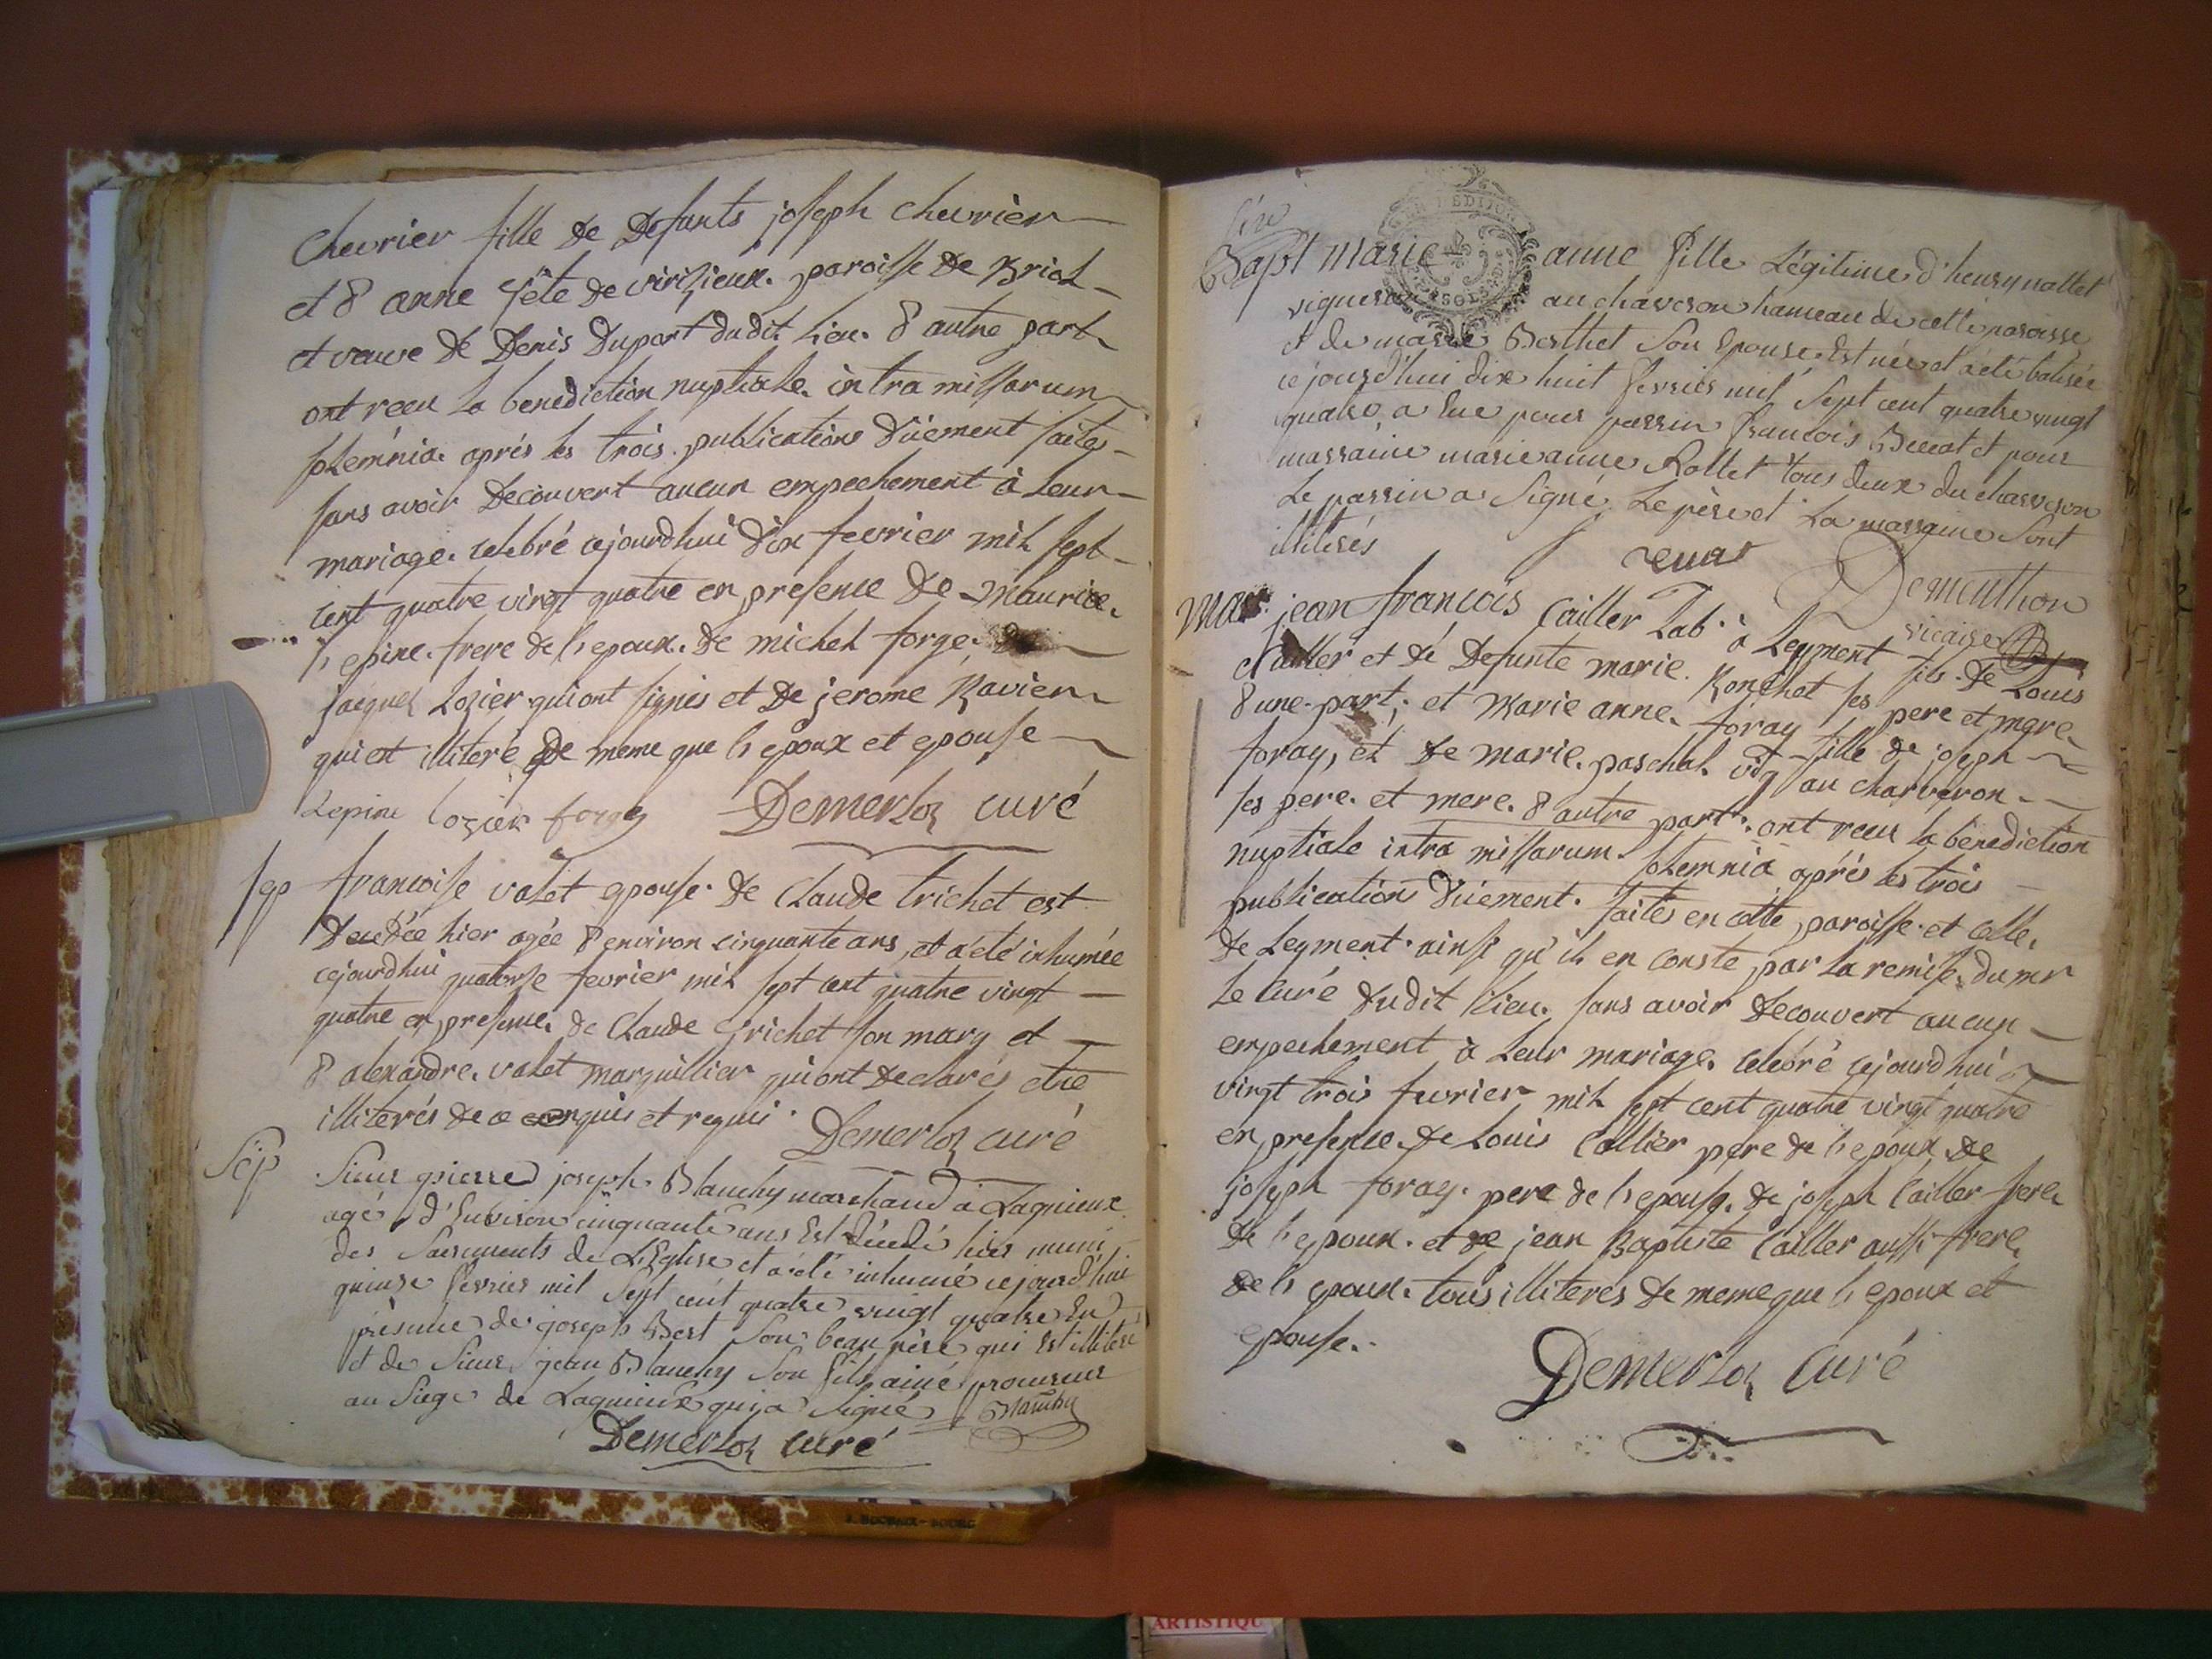 Chevrier fille de Defunts joseph chevrier
et d anne fête de virizieux. paroisse de Briol
et veuve de Denis Dupont dudit lieu. d autre part
ont recu la benediction nuptiale. intra missarum
solemnia. aprés les trois. publications düement faites
sans avoir Decouvert aucun empechement à leur
mariage. celebré cejourdhui dix fevrier mil sept
cent quatre vingt quatre en presence de Maurice.
l epine. frere de l epoux. de michel forge.
jacques lozier qui ont signés et de jerome Ravier
qui est illiteré de meme que l epoux et epouse
Lepine lozier forge Demerloz curé
sep francoise valet epouse de Claude trichet est
Decedée hier agée d environ cinquante ans, et a été inhumée
cejourdhui quatorse fevrier mil sept cent quatre vingt
quatre en presence. de Claude trichet son mary et
d alexandre. valet marguillier qui ont declarés etre
illiterés de ce enquis et requis. Demerloz curé
Sep Sieur pierre joseph Blanchy marchand a Lagnieux
agé d'Environ cinquante ans Est décédé hier muni
des Sacrements de L'Eglise et a été inhumé cejourdhui
quinze fevrier mil Sept cent quatre vingt quatre En
présence de joseph Best Son beau père qui Est illiteré
et de Sieur jean Blanchy Son fils ainé procureur
au Siege de Lagnieux qui a Signé Blanchy
Demerloz curé
Bapt marie anne fille Légitime d'henry vallet
vigneron au charveron hameau de cette paroisse
et de marie Berthet Son Epouse. Est née et a été batisée
cejourd'hui dix huit fevrier mil Sept cent quatre vingt
quatre, a Eue pour parrin francois et pour
marraine marie anne Rollet tous deux du charveron
Le parrin a Signé. Le père et La marraine Sont
illiterés
Dementhon
vicaire
Mar. jean francois Cailler Lab. à Leyment fils de Louis
Cailler et de Defunte marie. Ronchat ses pere et mere
d une part; et Marie anne. foray fille de joseph
foray, et de marie. paschal. vig au charveron
ses pere. et mere. d autre part. ont recu la benediction
nuptiale intra missarum. solemnia aprés les trois
publications düement. faites en cette paroisse. et celle.
de Leyment. ainsi qu'il en conste par la remise. du mr
le Curé dudit lieu. sans avoir Decouvert aucun
empechement à leur mariage. celebré cejourdhui
vingt trois fevrier mil sept cent quatre vingt quatre
en presence. de Louis Callier pere de l epoux de
joseph foray. pere de l epouse. de joseph Cailler frere
de l epoux. et de jean Baptiste Cailler aussi frere
de l epoux. tous illiterés de meme que l epoux et
epouse.
Demerloz Curé
ARTISTIQU